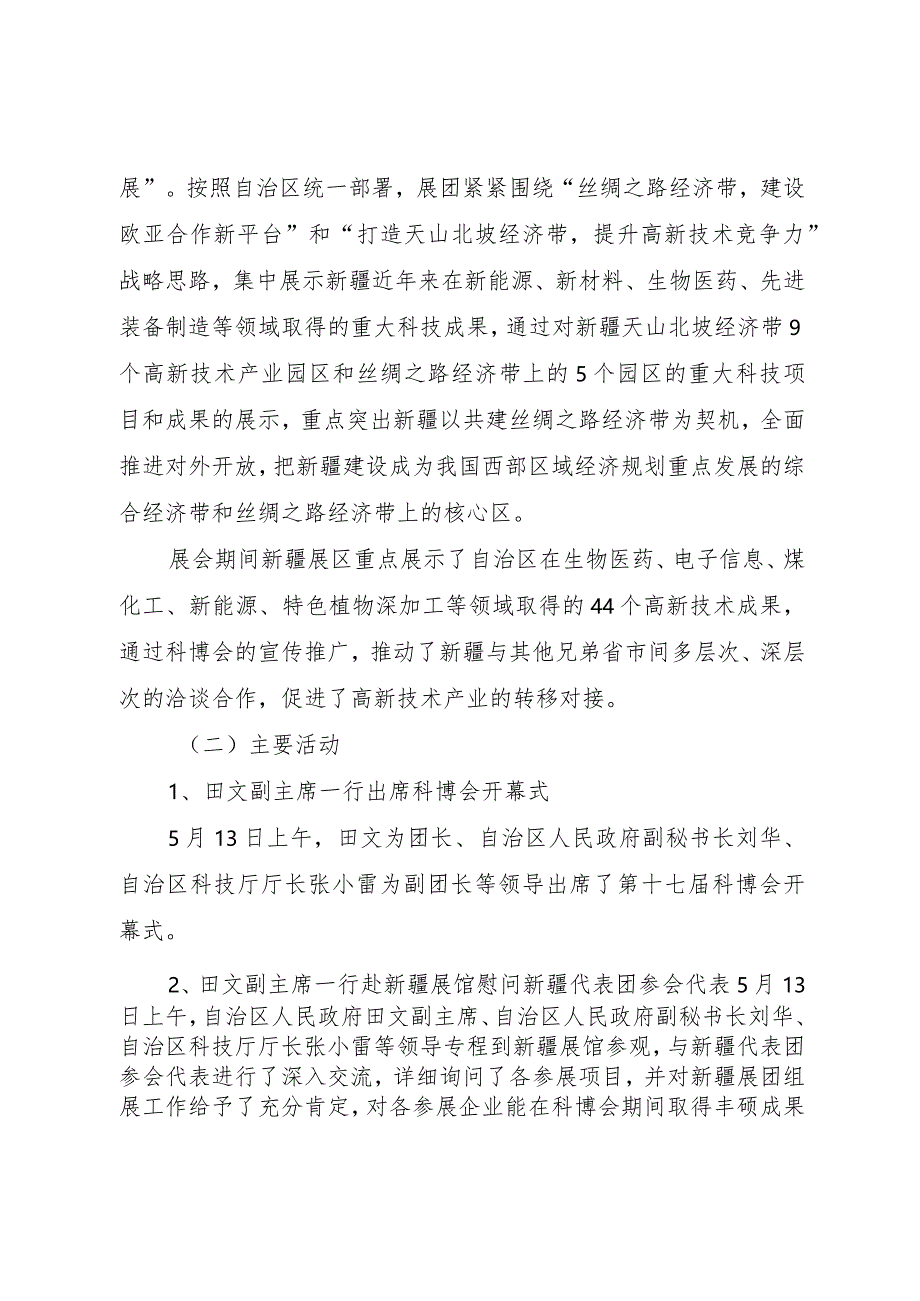 展”。按照自治区统一部署，展团紧紧围绕“丝绸之路经济带，建设
欧亚合作新平台”和“打造天山北坡经济带，提升高新技术竞争力”
战略思路，集中展示新疆近年来在新能源、新材料、生物医药、先进
装备制造等领域取得的重大科技成果，通过对新疆天山北坡经济带 9
个高新技术产业园区和丝绸之路经济带上的 5 个园区的重大科技项
目和成果的展示，重点突出新疆以共建丝绸之路经济带为契机，全面
推进对外开放，把新疆建设成为我国西部区域经济规划重点发展的综
合经济带和丝绸之路经济带上的核心区。
展会期间新疆展区重点展示了自治区在生物医药、电子信息、煤
化工、新能源、特色植物深加工等领域取得的 44 个高新技术成果，
通过科博会的宣传推广，推动了新疆与其他兄弟省市间多层次、深层
次的洽谈合作，促进了高新技术产业的转移对接。
（二）主要活动
1、田文副主席一行出席科博会开幕式
5 月 13 日上午，田文为团长、自治区人民政府副秘书长刘华、
自治区科技厅厅长张小雷为副团长等领导出席了第十七届科博会开
幕式。
2、田文副主席一行赴新疆展馆慰问新疆代表团参会代表 5 月 13
日上午，自治区人民政府田文副主席、自治区人民政府副秘书长刘华、
自治区科技厅厅长张小雷等领导专程到新疆展馆参观，与新疆代表团
参会代表进行了深入交流，详细询问了各参展项目，并对新疆展团组
展工作给予了充分肯定，对各参展企业能在科博会期间取得丰硕成果